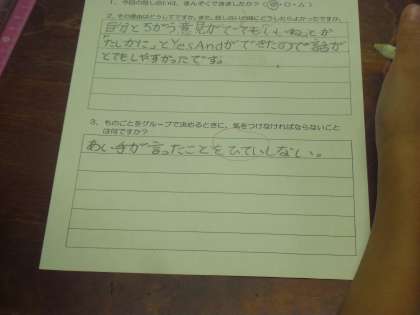 1、今回の話し合いは、まんぞくできましたか？（◎・○・△）
2、その理由はどうしてですか。また、話し合いの時にどうしたらよかったですか。
自分とちがう意見がでてもいいね。とか
「たしかに」とYesAndができたので話が
とてもしやすかったです。
3、ものごとをグループで決めるときに、気をつけなければならないこと
は何ですか？
あい手が言ったことをひていしない。